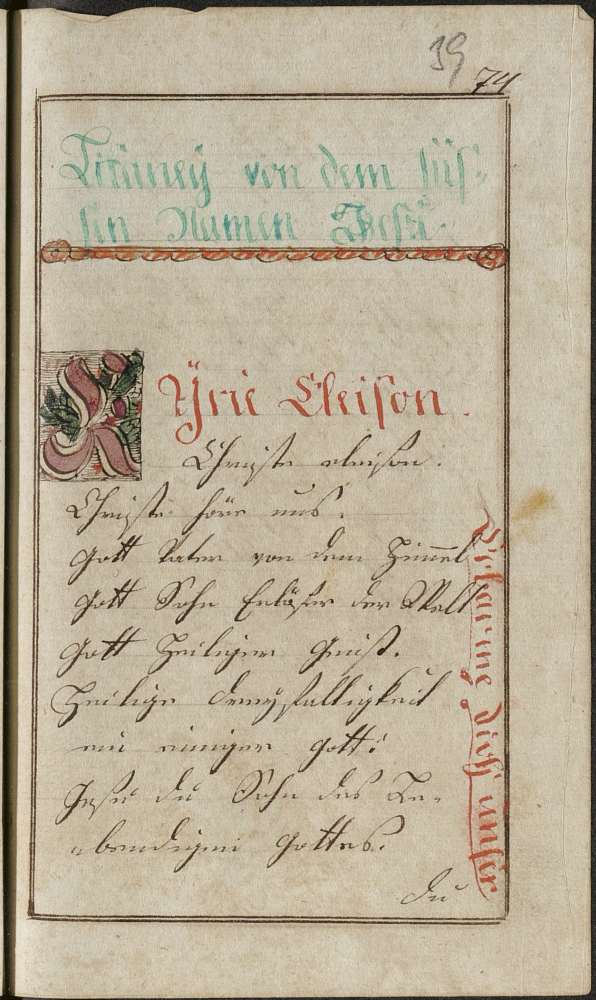 39
74
Litaney von dem süs-
sen Namen Jesu.
KYrie Eleison.
Christe eleison.
Christe höre uns.
Gott Vater von dem Himmel
Gott Sohn Erlöser der Welt
Gott Heiliger Geist.
Heilige Dreyfaltigkeit
ein einiger Gott:
Jesu du Sohn des Le-
bendigen Gottes.
Erbarme dich unser
Du